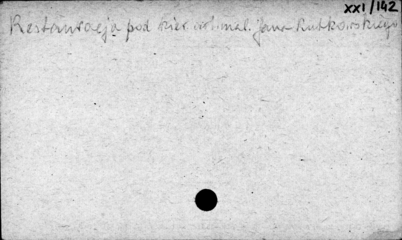 XXI/142
Restauracja pod kier. art. mal. Jana Rutkowskiego